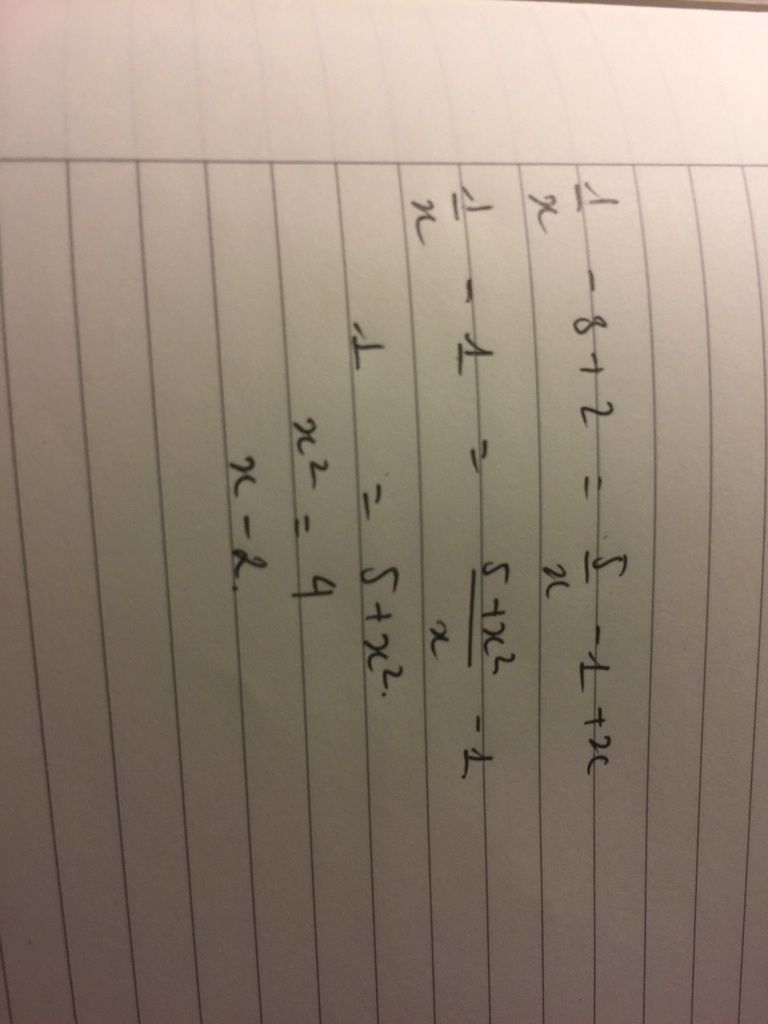 1/x - 8 + 2 = 5/x - 1 + x
1/x - 1 = (5 + x²)/x - 1
1 = 5 + x².
x² = 4
x - 2.